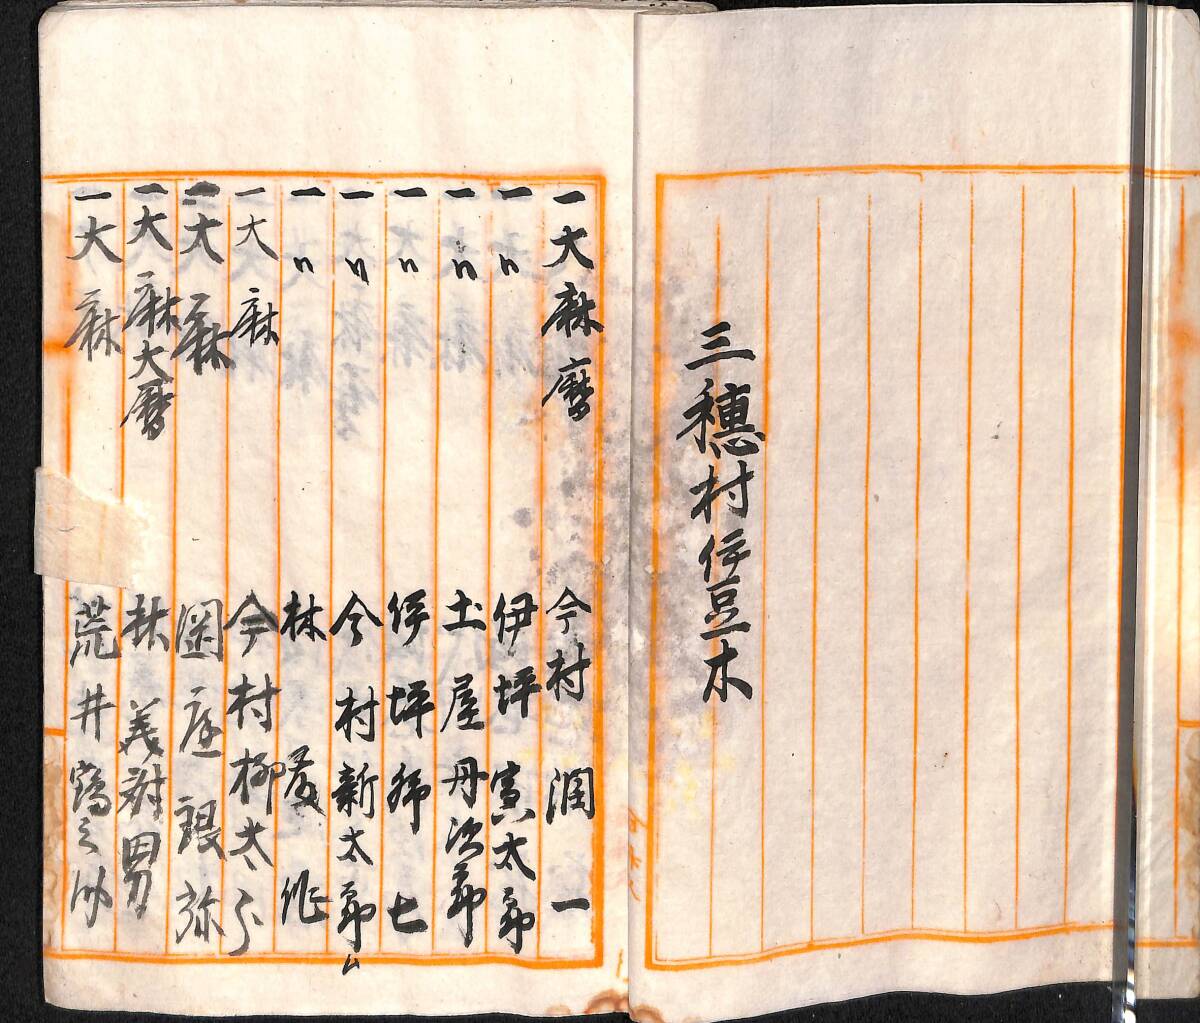 三穂村伊豆木
一大麻暦 今村潤一
一〃 伊坪寅太郎
一〃 土屋丹次郎
一〃 伊坪弥七
一〃 今村新太郎
一〃 林 作
一大麻 今村柳太
一大麻 岡庭銀弥
一大麻大暦 林義 男
一大麻 荒井鶴之助